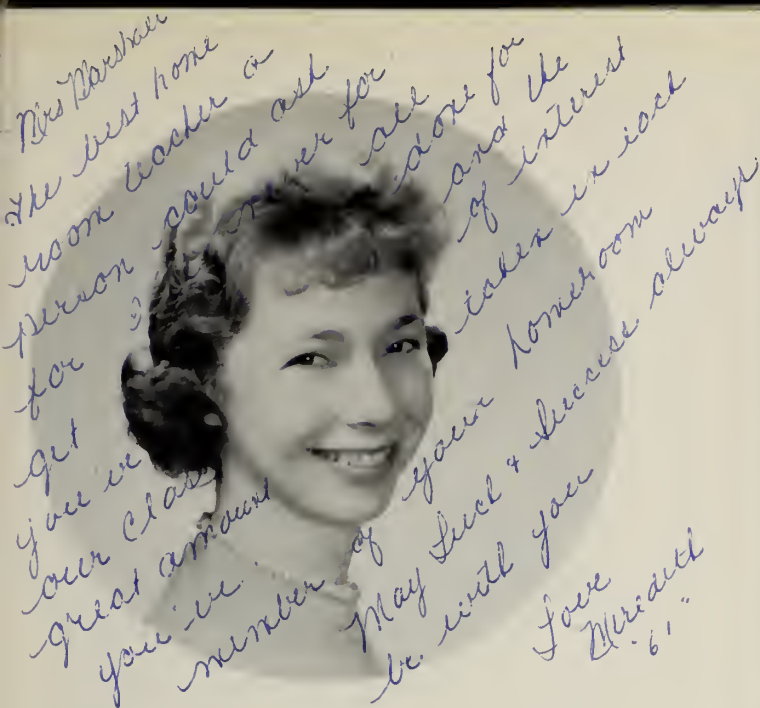 Mrs Marshall
The best home
room teacher a
person could ask
for for
get all
you've done for
our class and the
great amount of interest
you've taken in each
member of your homeroom
May Luck & Success always
be with you
Love
Meridith
"61"